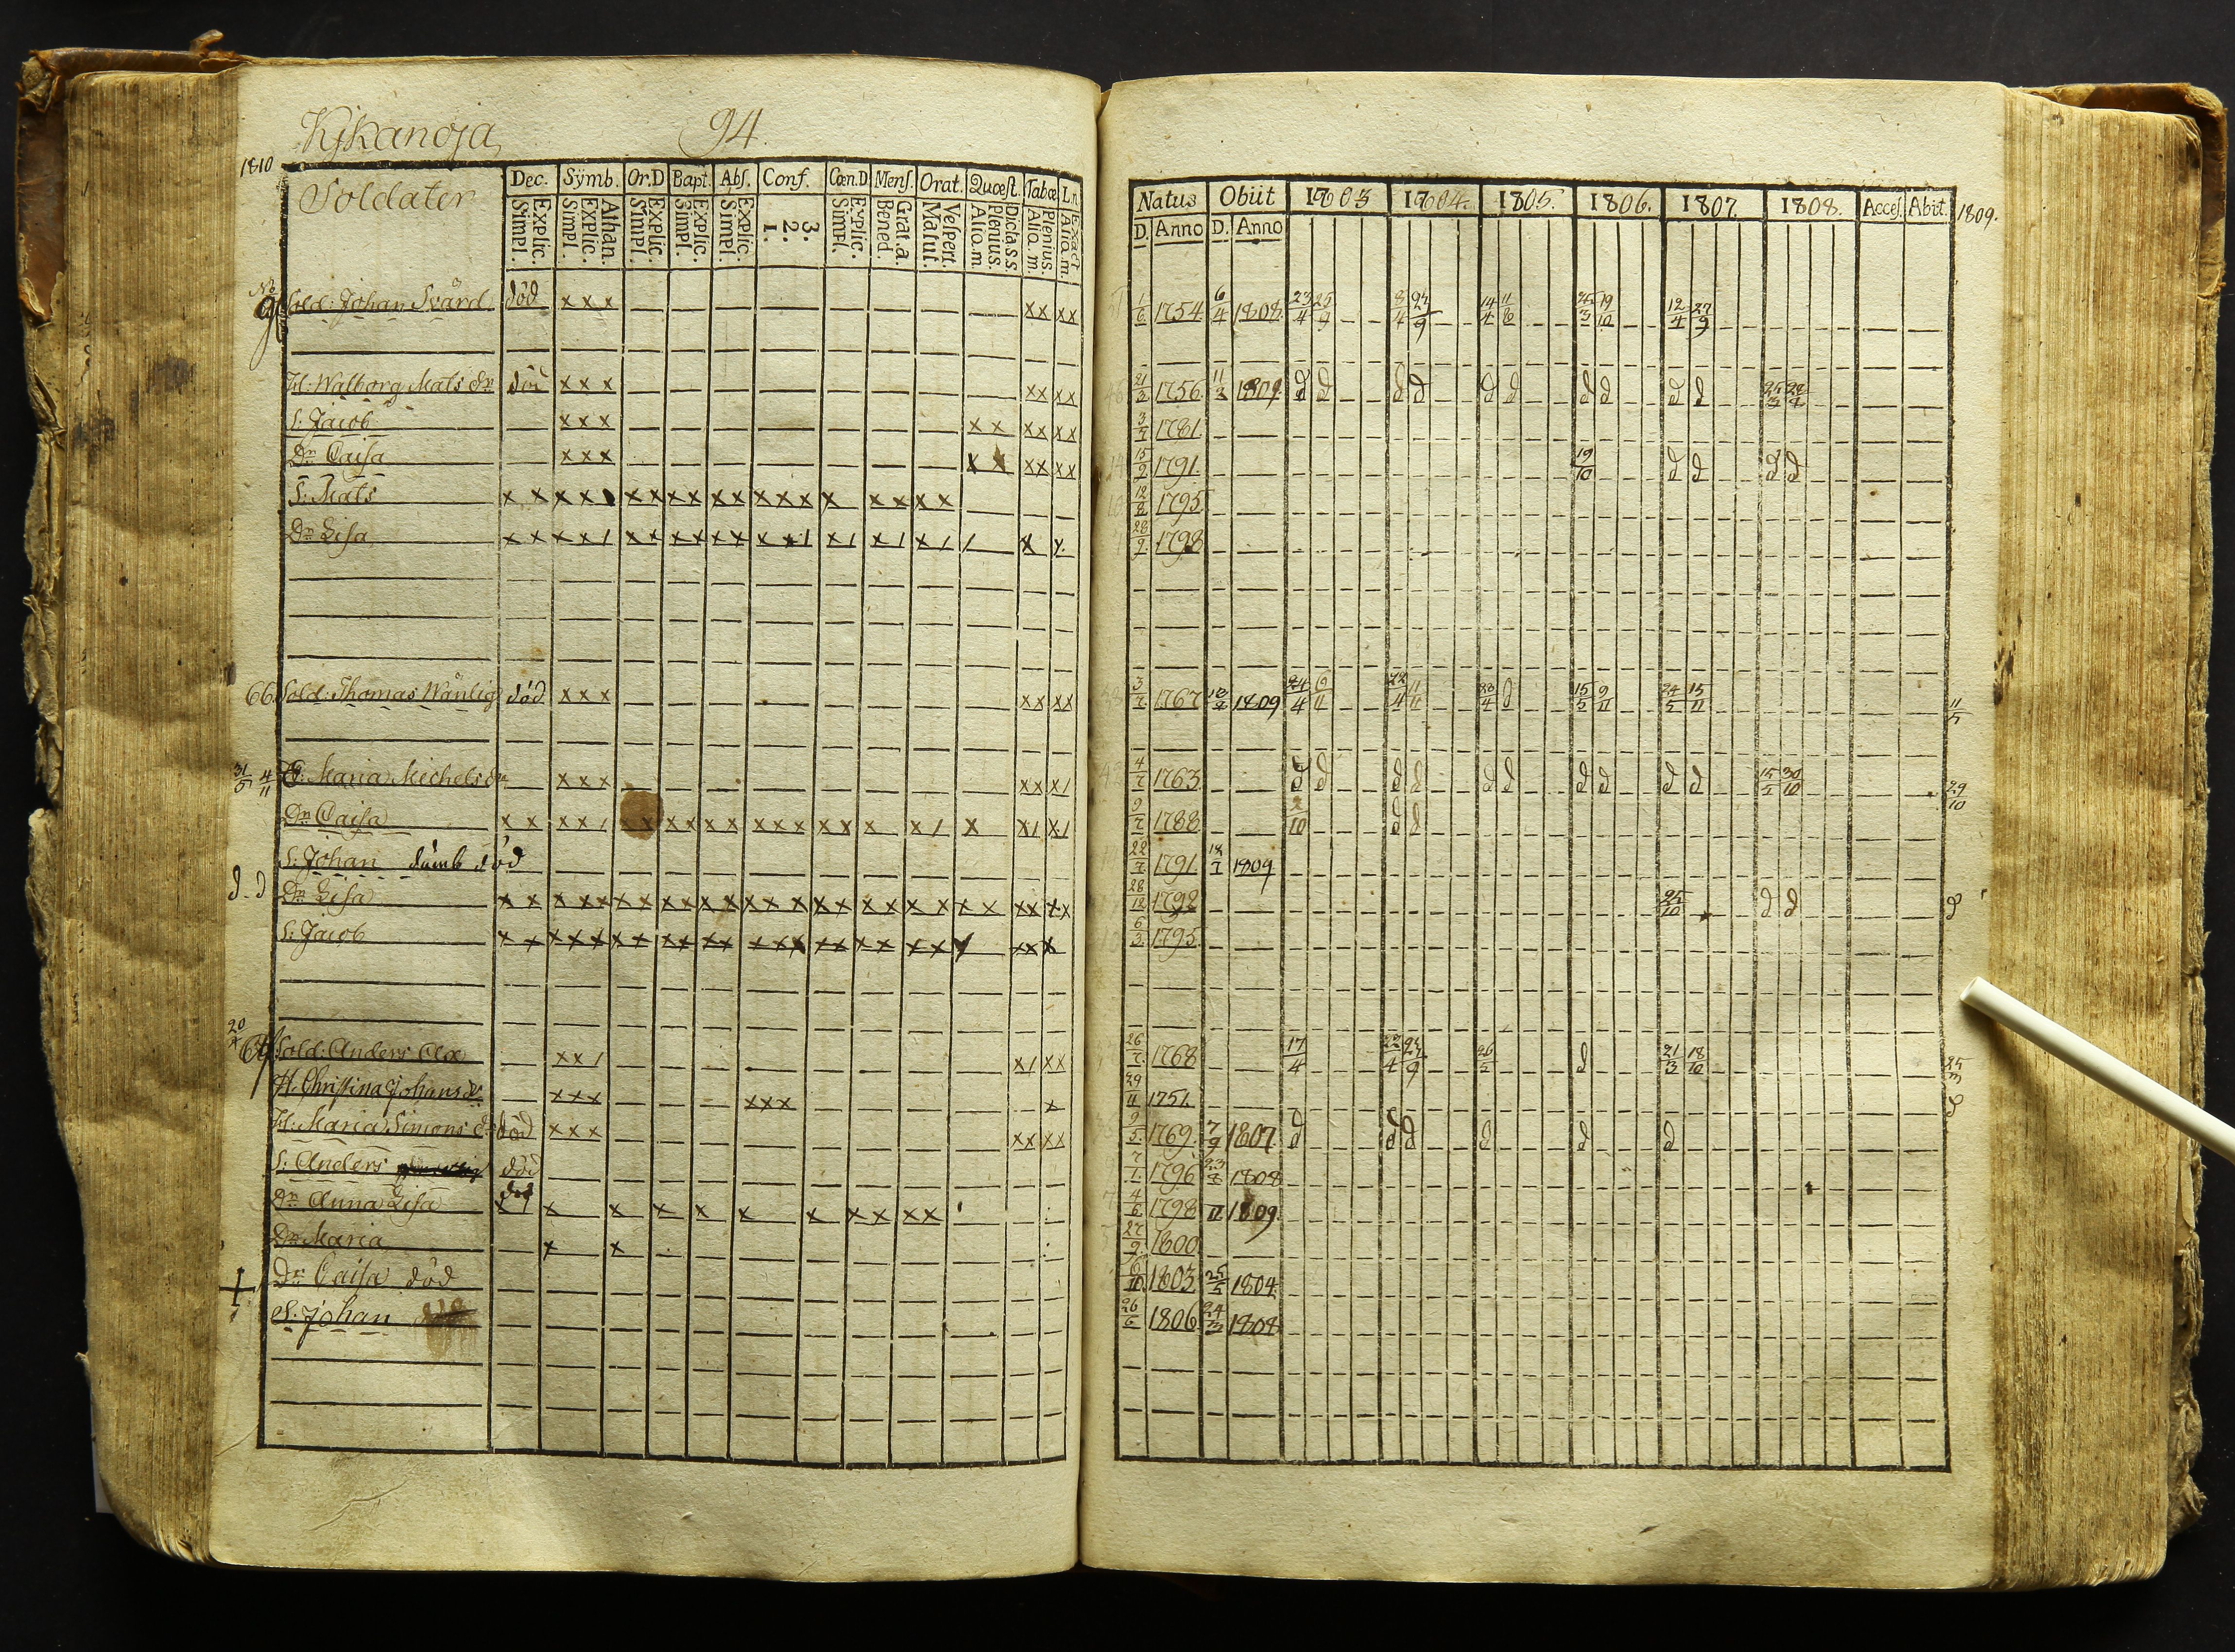 Kjkanoja 94.
1810
Soldater Dec. Sÿmb. Or.D Bapt. Abſ. Conf. Cœn.D Menſ. Orat. Quœſt. Tabœ L.n
Explic. Simpl. Athan. Explic. Simpl. Explic. Simpl. Explic. Simpl. Explic. Simpl. 3. 2. 1. Explic. Simpl. Grat.a. Bened. Veſpert. Matut. Dicta.s.s Plenius. Alio.m Plenius. Alio.m. Exact Alio.m.
Sold: Johan Svärd död x x x x x x x
H: Walborg Mats dr död x x x x x x x
S: Jacob x x x x x x x x x
Dr Caisa x x x x x x x x x
S: Mats x x x x x x x x x x x x x x x x x x
Dr Lisa x x x x / x x x x x x x x / x / x / x / / x x
66. Sold: Thomas Wänlig död x x x x x x x
31/5 4/11 H: Maria Michels dr x x x x x x /
Dr Caisa x x x x / x x x x x x x x x x x x x / x x / x /
S: Johan dumb död
d d Dr Lisa x x x x x x x x x x x x x x x x x x x x x x x x x x
S: Jacob x x x x x x x x x x x x x x x x x x x x x x x
Sold: Anders x x / x / x x
H. Christina Johans dr x x x x x x x
H: Maria Simons dr död x x x x x x x
S: Anders död
Dr Anna Lisa död x x x x x x x x x x
Dr Maria x x
Dr Caisa död
S: Johan
Natus Obiit 1803 1804. 1805. 1806. 1807. 1808. Acceſ. Abiit. 1809.
D. Anno D. Anno
1/6 1754 6/4 1808. 23/4 25/9 8/4 14/4 11/8 19/10 12/4 27/9
21/3 1756. 1809 d d d d d d d d d d
3/7 1781.
15/2 1791. 19/10 d d d d
12/8 1795.
28/9 1798
3/7 1767 1809 24/4 6/11 15/5 9/11 24/5 15/11 11/5
4/7 1763 d d d d d d d d d d 15/5 30/10 29/10
9/7 1788 d d
22/7 1791. 18/7 1809
28/12 1792 25/10 d d d
6/3 1795.
26/7 1768 17/4 26/5 d 21/3 18/10 25/3
29/11 1751. d
9/5 1769. 7/9 1807. d d d d d d
7/1 1796 1808
4/6 1798 11 1809.
27/9 1800
6/10 1803 25/5 1804.
26/6 1806 24/3 1808